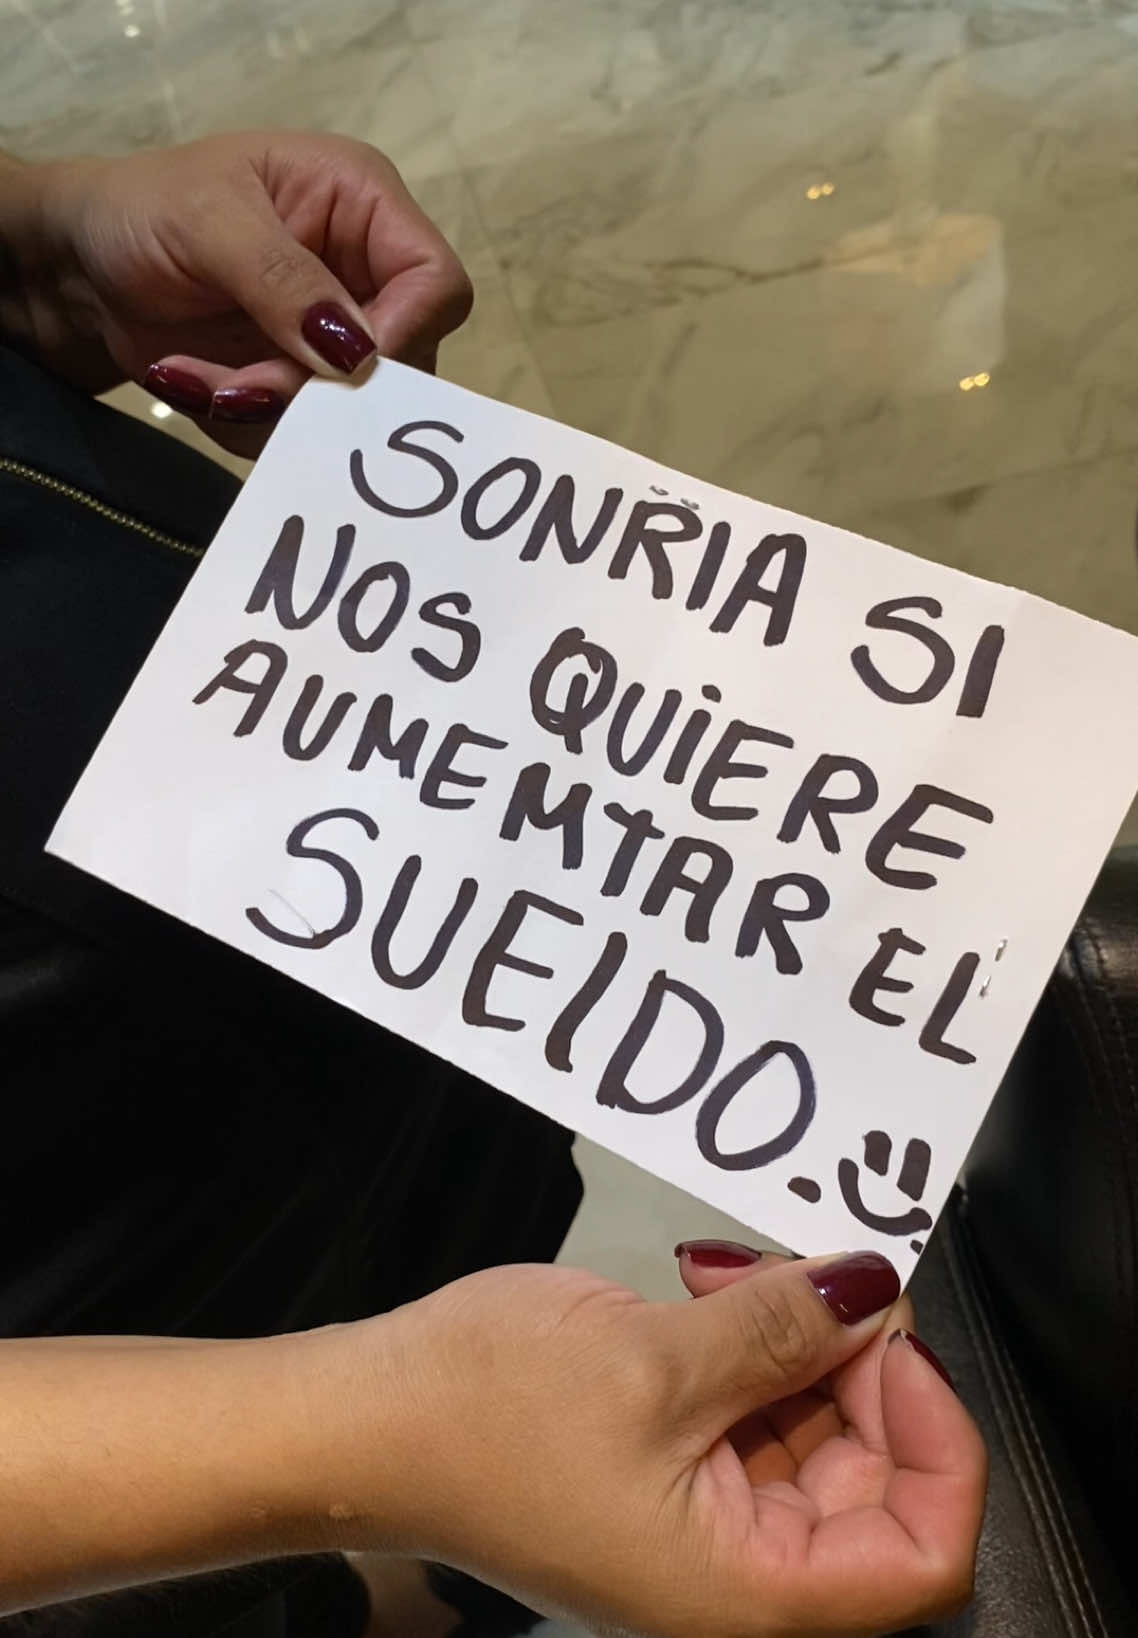 SONRIA SI
NOS QUIERE
AUMEMTAR EL
SUElDO.